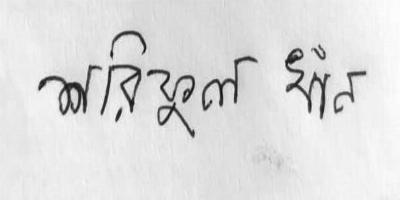 শরিফুল খাঁন